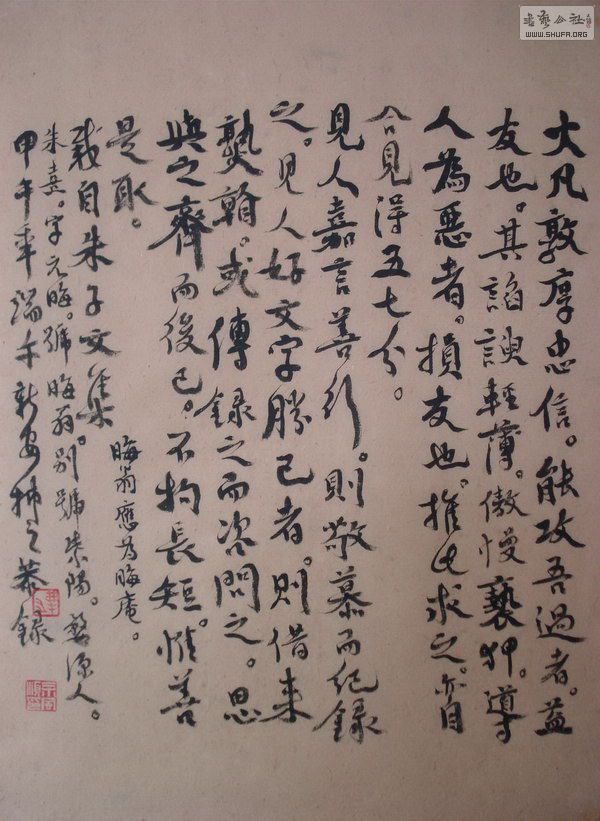 大凡敦厚忠信。能攻吾過者。益
友也。其諂諛輕薄。傲慢褻狎。導
人為惡者。損友也。推此求之。亦自
合見得五七分。
見人嘉言善行。則敬慕而紀錄
之。見人好文字勝己者。則借来
熟翰。或傳錄之而咨問之。思
與之齊而後已。不拘長短。惟善
是取。
晦翁應為晦庵。
載自朱子文集。
朱熹。字元晦。號晦翁。別號紫陽。婺源人。
甲午年端午新安 恭錄
書藝公社
WWW.SHUFA.ORG